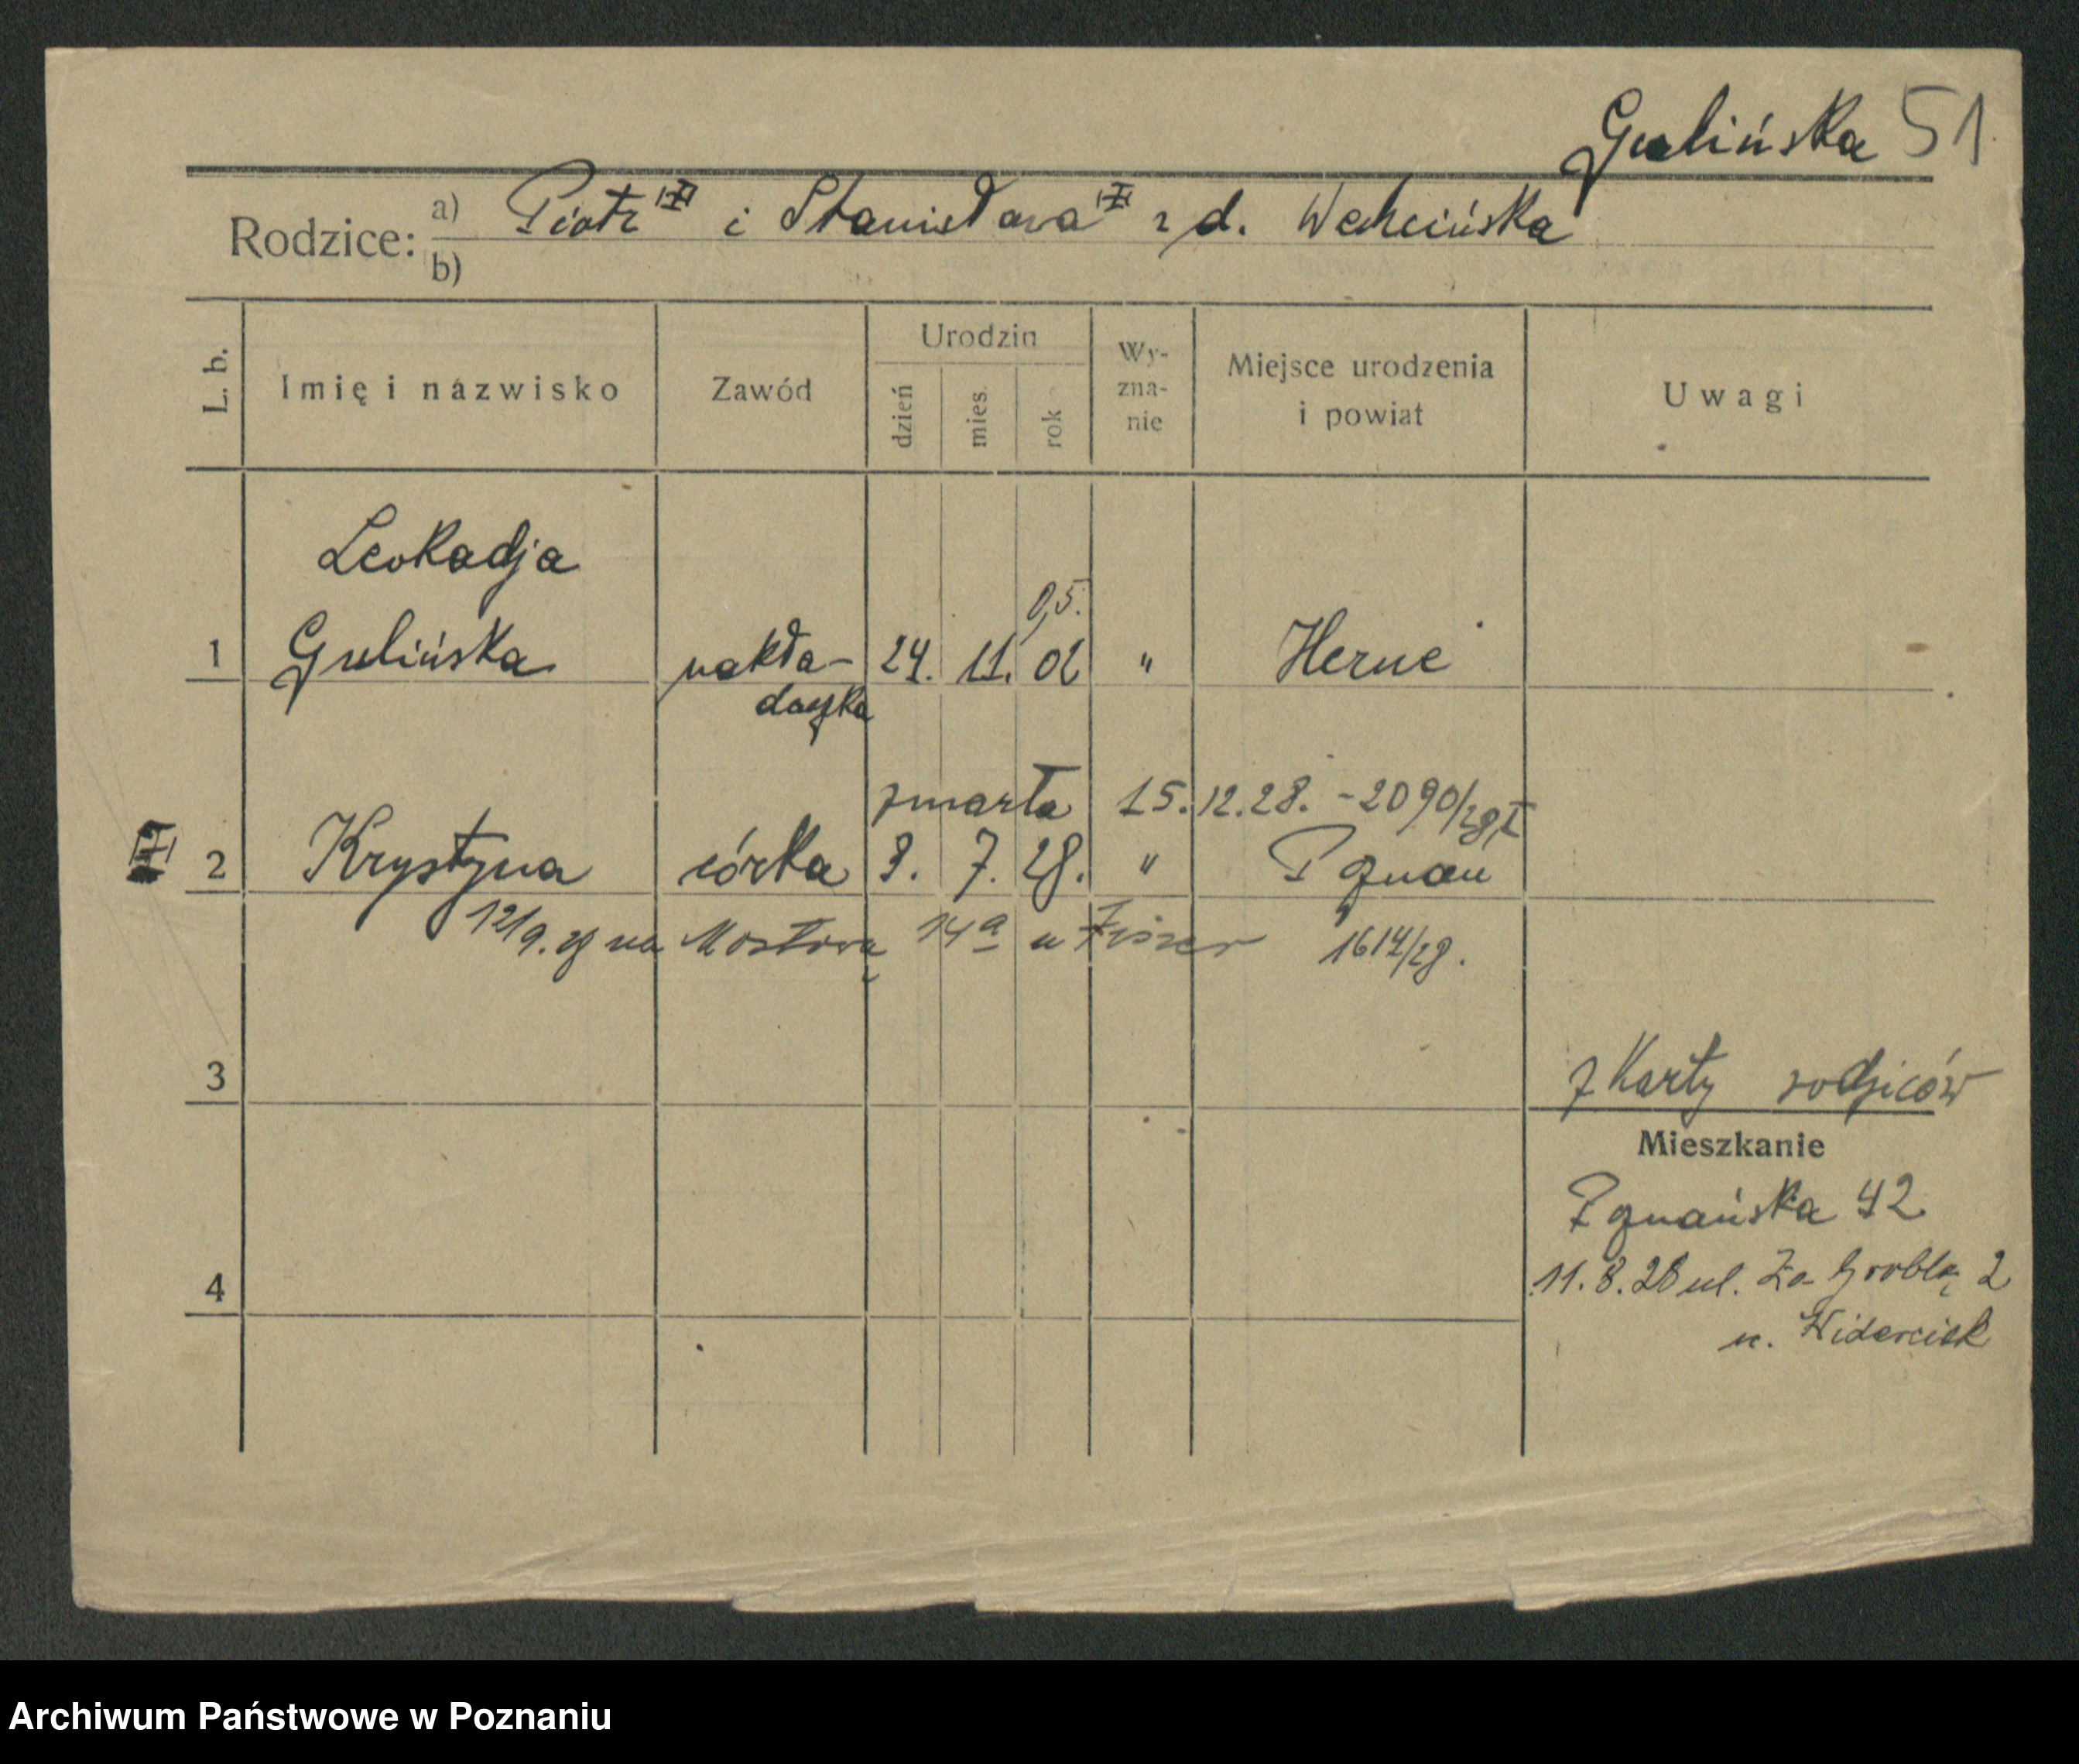 Gulińska 51
Rodzice: a) Piotr i Stanisława z d. Wechcińska
b)
L. b. Imię i nazwisko Zawód Urodzin dzień mies. rok Wy-zna-nie Miejsce urodzenia i powiat Uwagi
Leokadja
05.
1 Gulińska nakła- 24. 11. 02 " Herne
daczka
zmarła 15.12.28. - 2090/28 I
2 Krystyna córka 3. 7. 28. " Poznań
12/9. 28 na Mostową 14a u Fiszer 1614/28.
3
z Karty rodziców
Mieszkanie
Poznańska 42
11.8.28 ul. Za Groblą 2
4
u.
Archiwum Państwowe w Poznaniu